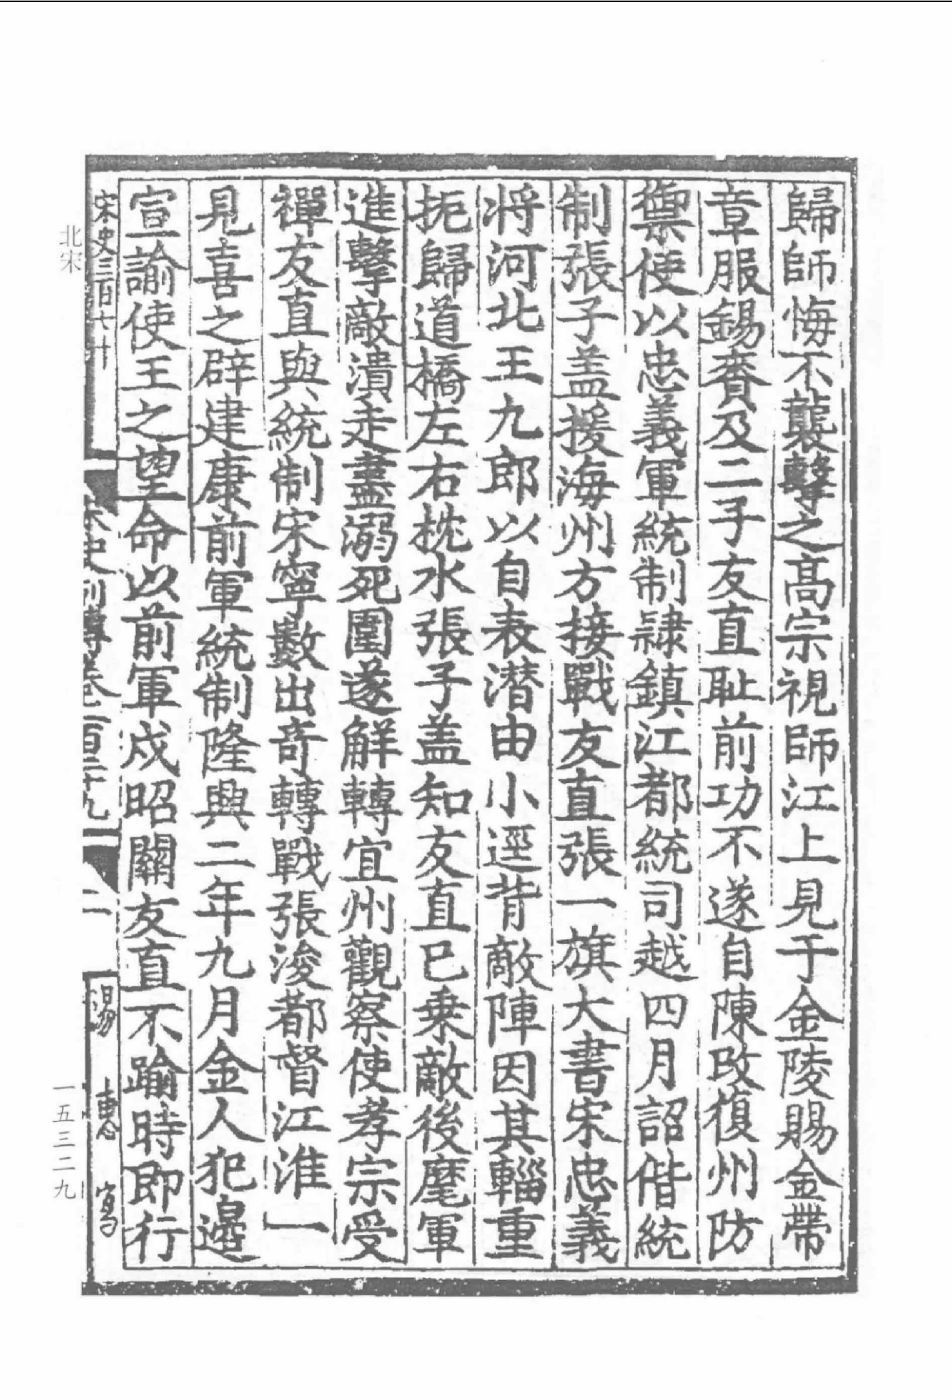 歸師悔不襲擊之髙宗視師江上見于金陵賜金帶
章服錫賚及二子友直耻前功不遂自陳改復州防
禦使以忠義軍統制隷鎮江都統司越四月詔偕統
制張子盖援海州方接戰友直張一旗大書宋忠義
将河北王九郎以自表潜由小逕背敵陣因其輜重
扼歸道橋左右枕水張子盖知友直已乗敵後麾軍
進擊敵潰走盡溺死圍遂解轉宜州觀察使孝宗受
禪友直與統制宋寧數出竒轉戰張浚都督江淮一
見喜之辟建康前軍統制隆興二年九月金人犯邉
宣諭使王之望命以前軍戍昭關友直不踰時即行
宋史三百七十
宋史列傳卷一百二十九
二
湯
惠
寫
北宋
一五三二九